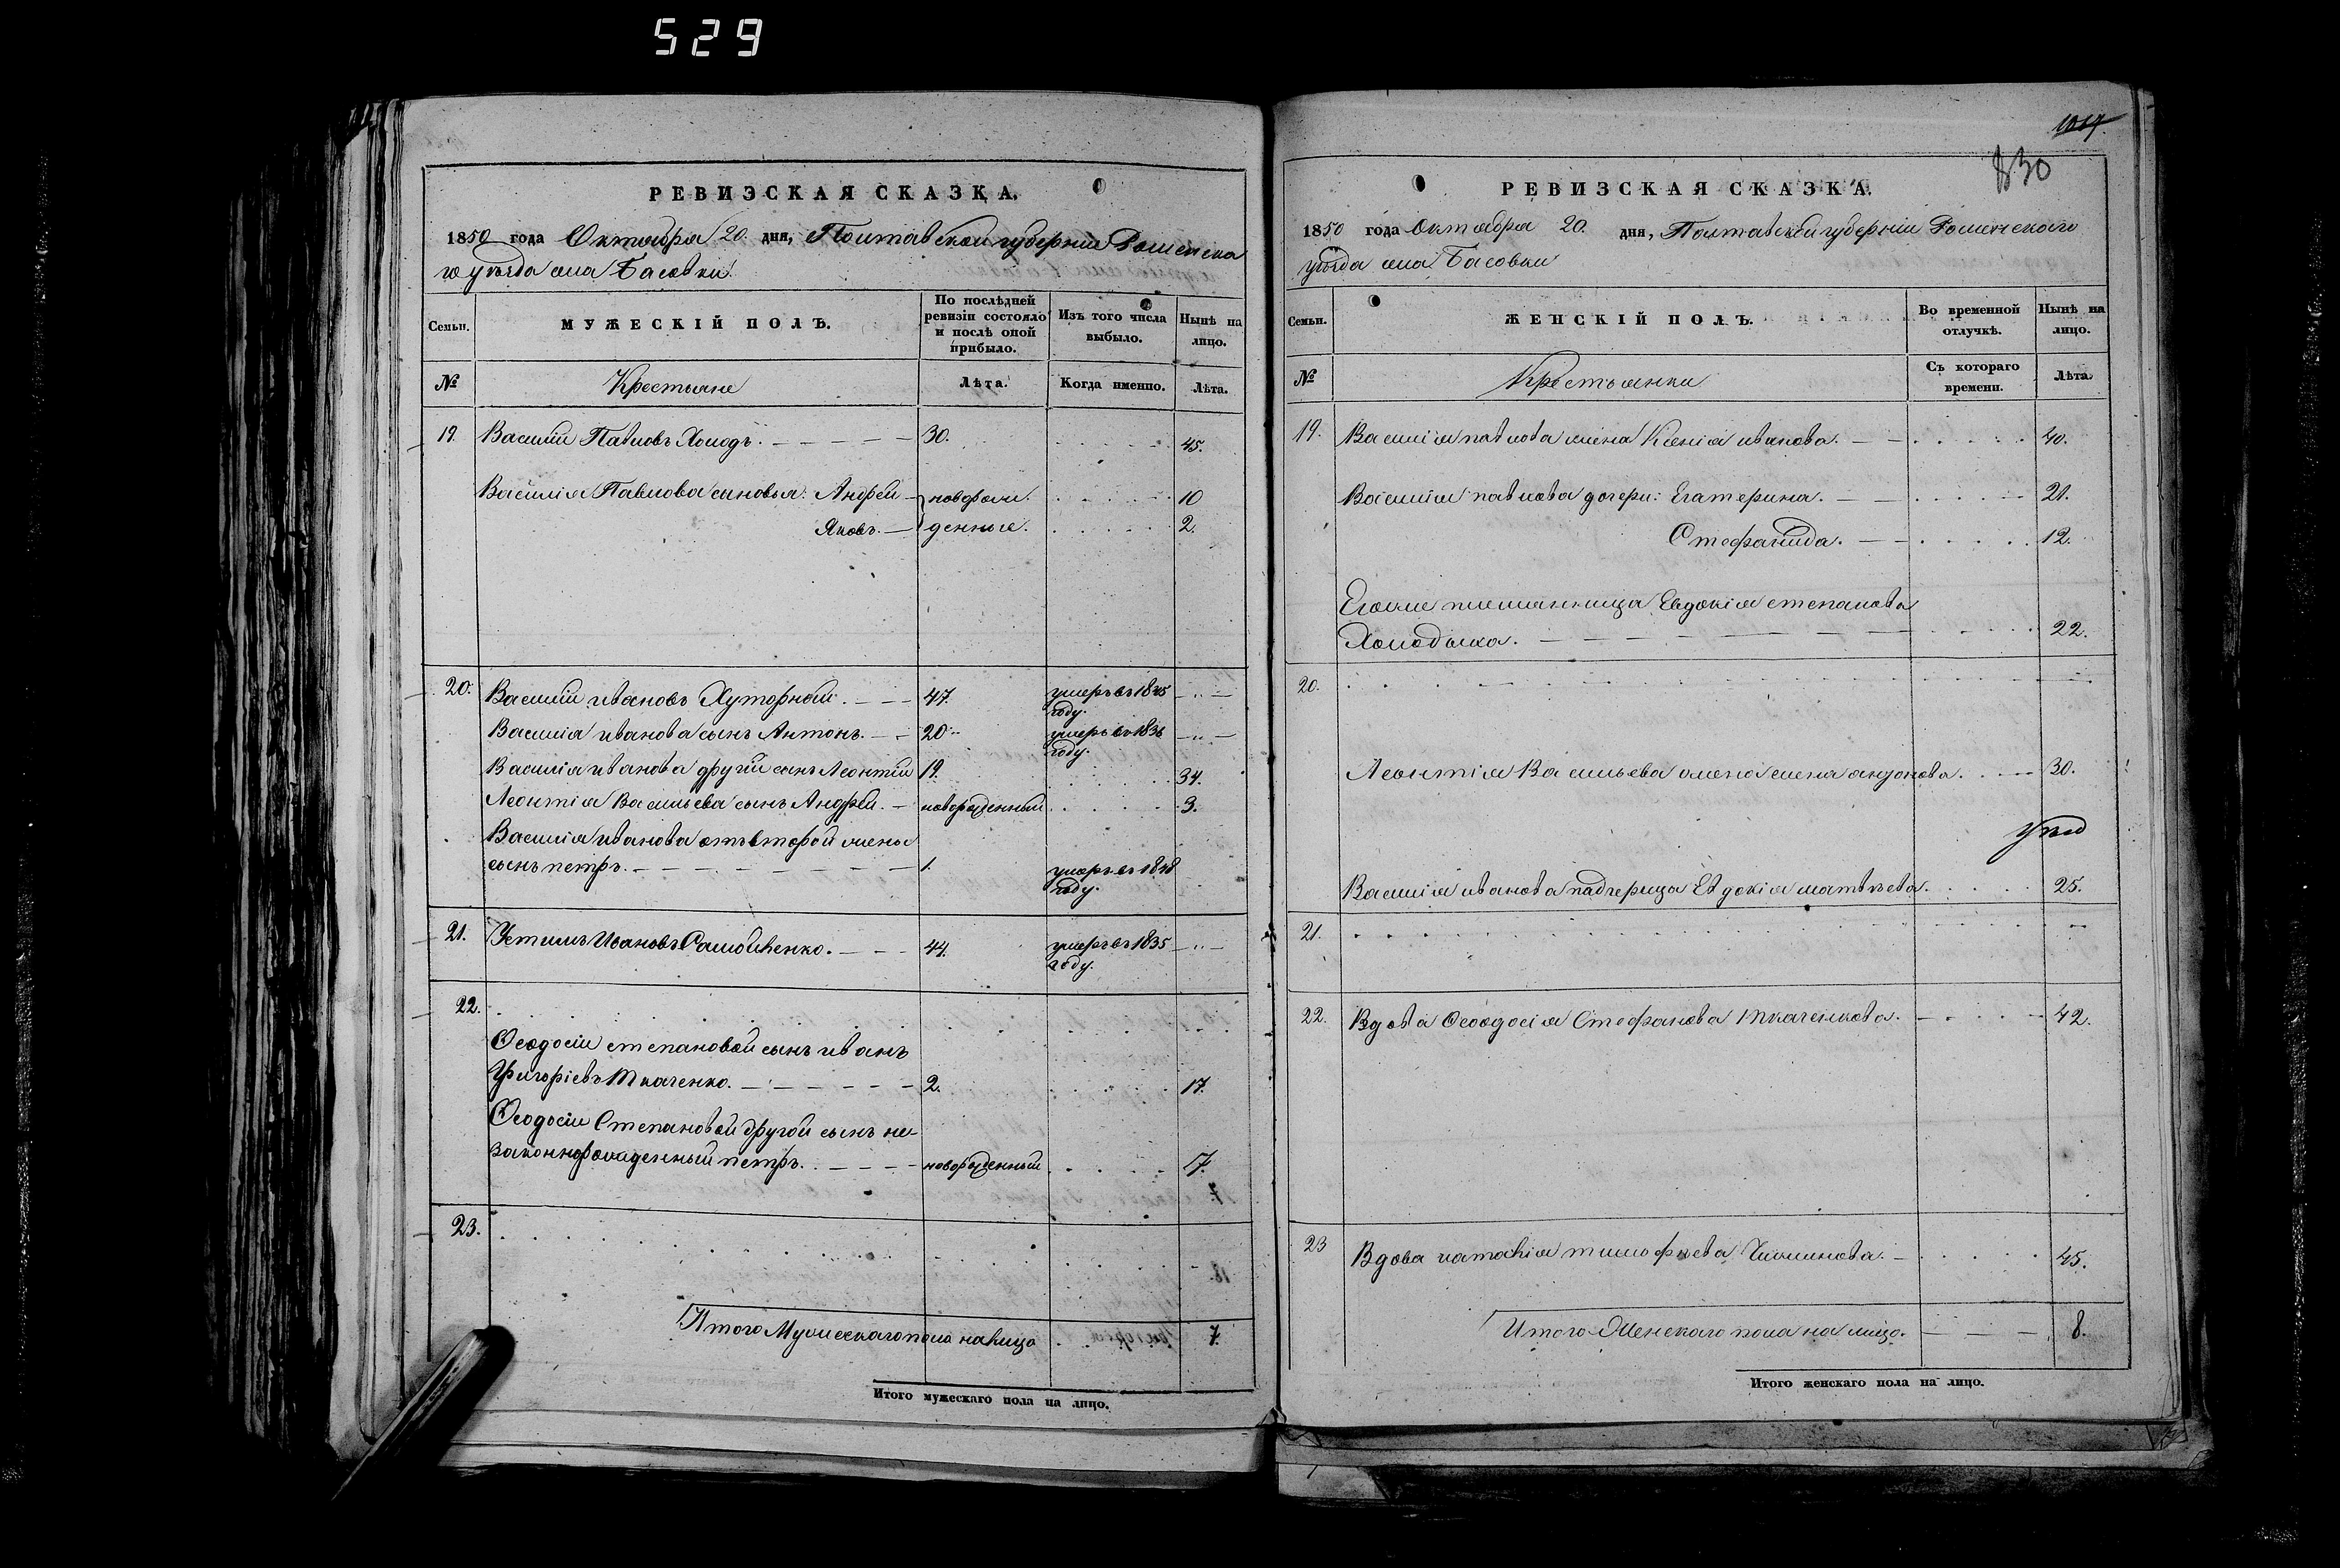 529
РЕВИЗСКАЯ СКАЗКА.
1850 года Октября 20. дня, Полтавской губерніи Роменска
го уѣзда села Басовки.
Семьи.
МУЖЕСКІЙ ПОЛЪ.
По послѣдней
ревизіи состояло
и послѣ оной
прибыло.
Изъ того числа
выбыло.
Нынѣ на
лицо.
№
Крестьяне
Лѣта.
Когда именно.
Лѣта.
19. Василій Павловъ Холодъ. 30. 45.
Василія Павлова сыновья: Андрей новорож 10
Яковъ. денные. 2.
20. Василій ивановъ Хуторный. 47. умеръ въ 1845
году.
Василія иванова сынъ Антонъ. 20 умеръ въ 1836
году.
Василія иванова другій сынъ Леонтій 19. 34.
Леонтія Васильева сынъ Андрей. новорожденный 3.
Василія иванова отъ второй жены
сынъ петръ. 1. умеръ въ 1848
году.
21. Устимъ Ивановъ Самойленко. 44. умеръ въ 1835
году.
22.
Ѳеодосіи степановой сынъ иванъ
Григоріевъ Ткаченко. 2. 17.
Ѳеодосіи Степановой другой сынъ не-
законнорожденный петръ. новорожденный 17.
7.
23.
Итого Мужескаго пола налицо 7.
Итого мужескаго пола на лицо.
1017.
830
РЕВИЗСКАЯ СКАЗКА.
1850 года Октября 20. дня, Полтавской губерніи Роменскаго
уѣзда села Басовки
Семьи.
ЖЕНСКІЙ ПОЛЪ.
Во временной
отлучкѣ.
Нынѣ на
лицо.
№
Крестьянки
Съ котораго
времени.
Лѣта.
19. Василія павлова жена Ксенія иванова. 40.
Василія павлова дочери: Екатерина. 21.
Стефанида. 12.
Егоже племянница Евдокія степанова
Холодыка. 22.
20.
Леонтія Васильева жена елена андонова. 30.
Василія иванова падчерица Евдокія матвѣева. 25.
21.
22. Вдова Ѳеодосія Стефанова Ткаченкова. 42.
23 Вдова наталія тимофѣева 45.
Итого Женскаго пола на лицо. 8.
Итого женскаго пола на лицо.